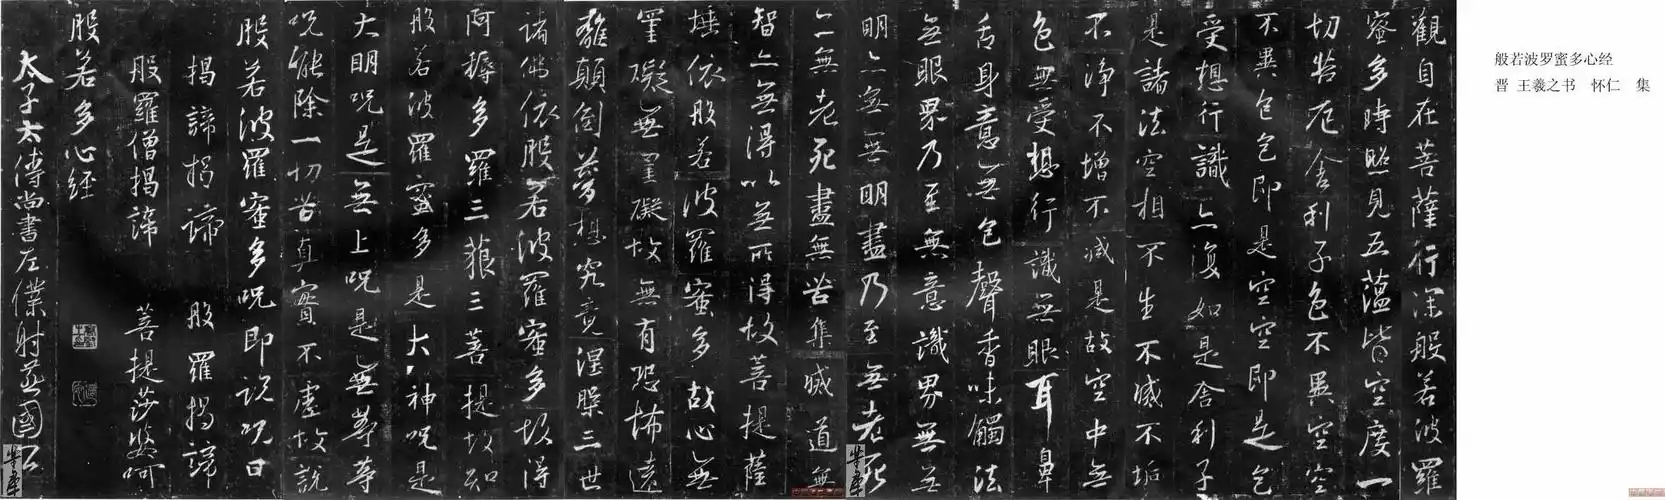 般若波罗蜜多心经
晋 王羲之书 怀仁 集
觀自在菩薩行深般若波羅
蜜多時照見五蘊皆空度一
切苦厄舍利子色不異空空
不異色色即是空空即是色
受想行識亦復如是舍利子
是諸法空相不生不滅不垢
不淨不增不減是故空中無
色無受想行識無眼耳鼻
舌身意無色聲香味觸法
無眼界乃至無意識界無無
明亦無無明盡乃至無老死
亦無老死盡無苦集滅道無
智亦無得以無所得故菩提薩
埵依般若波羅蜜多故心無
罣礙無罣礙故無有恐怖遠
離顛倒夢想究竟涅槃三世
諸佛依般若波羅蜜多故得
阿耨多羅三藐三菩提故知
般若波羅蜜多是大神呪是
大明呪是無上呪是無等等
呪能除一切苦真實不虛故說
般若波羅蜜多呪即說呪曰
揭諦揭諦 般羅揭諦
般羅僧揭諦 菩提莎婆呵
般若多心經
太子太傅尚書左僕射燕國公